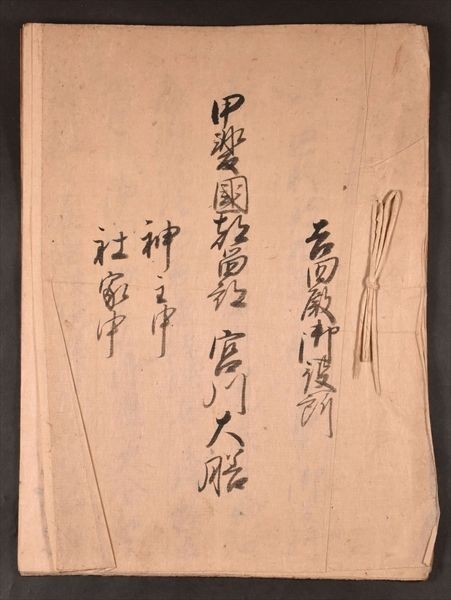 吉田殿御役所
甲斐國都留郡 宮川大膳
神主中
社家中